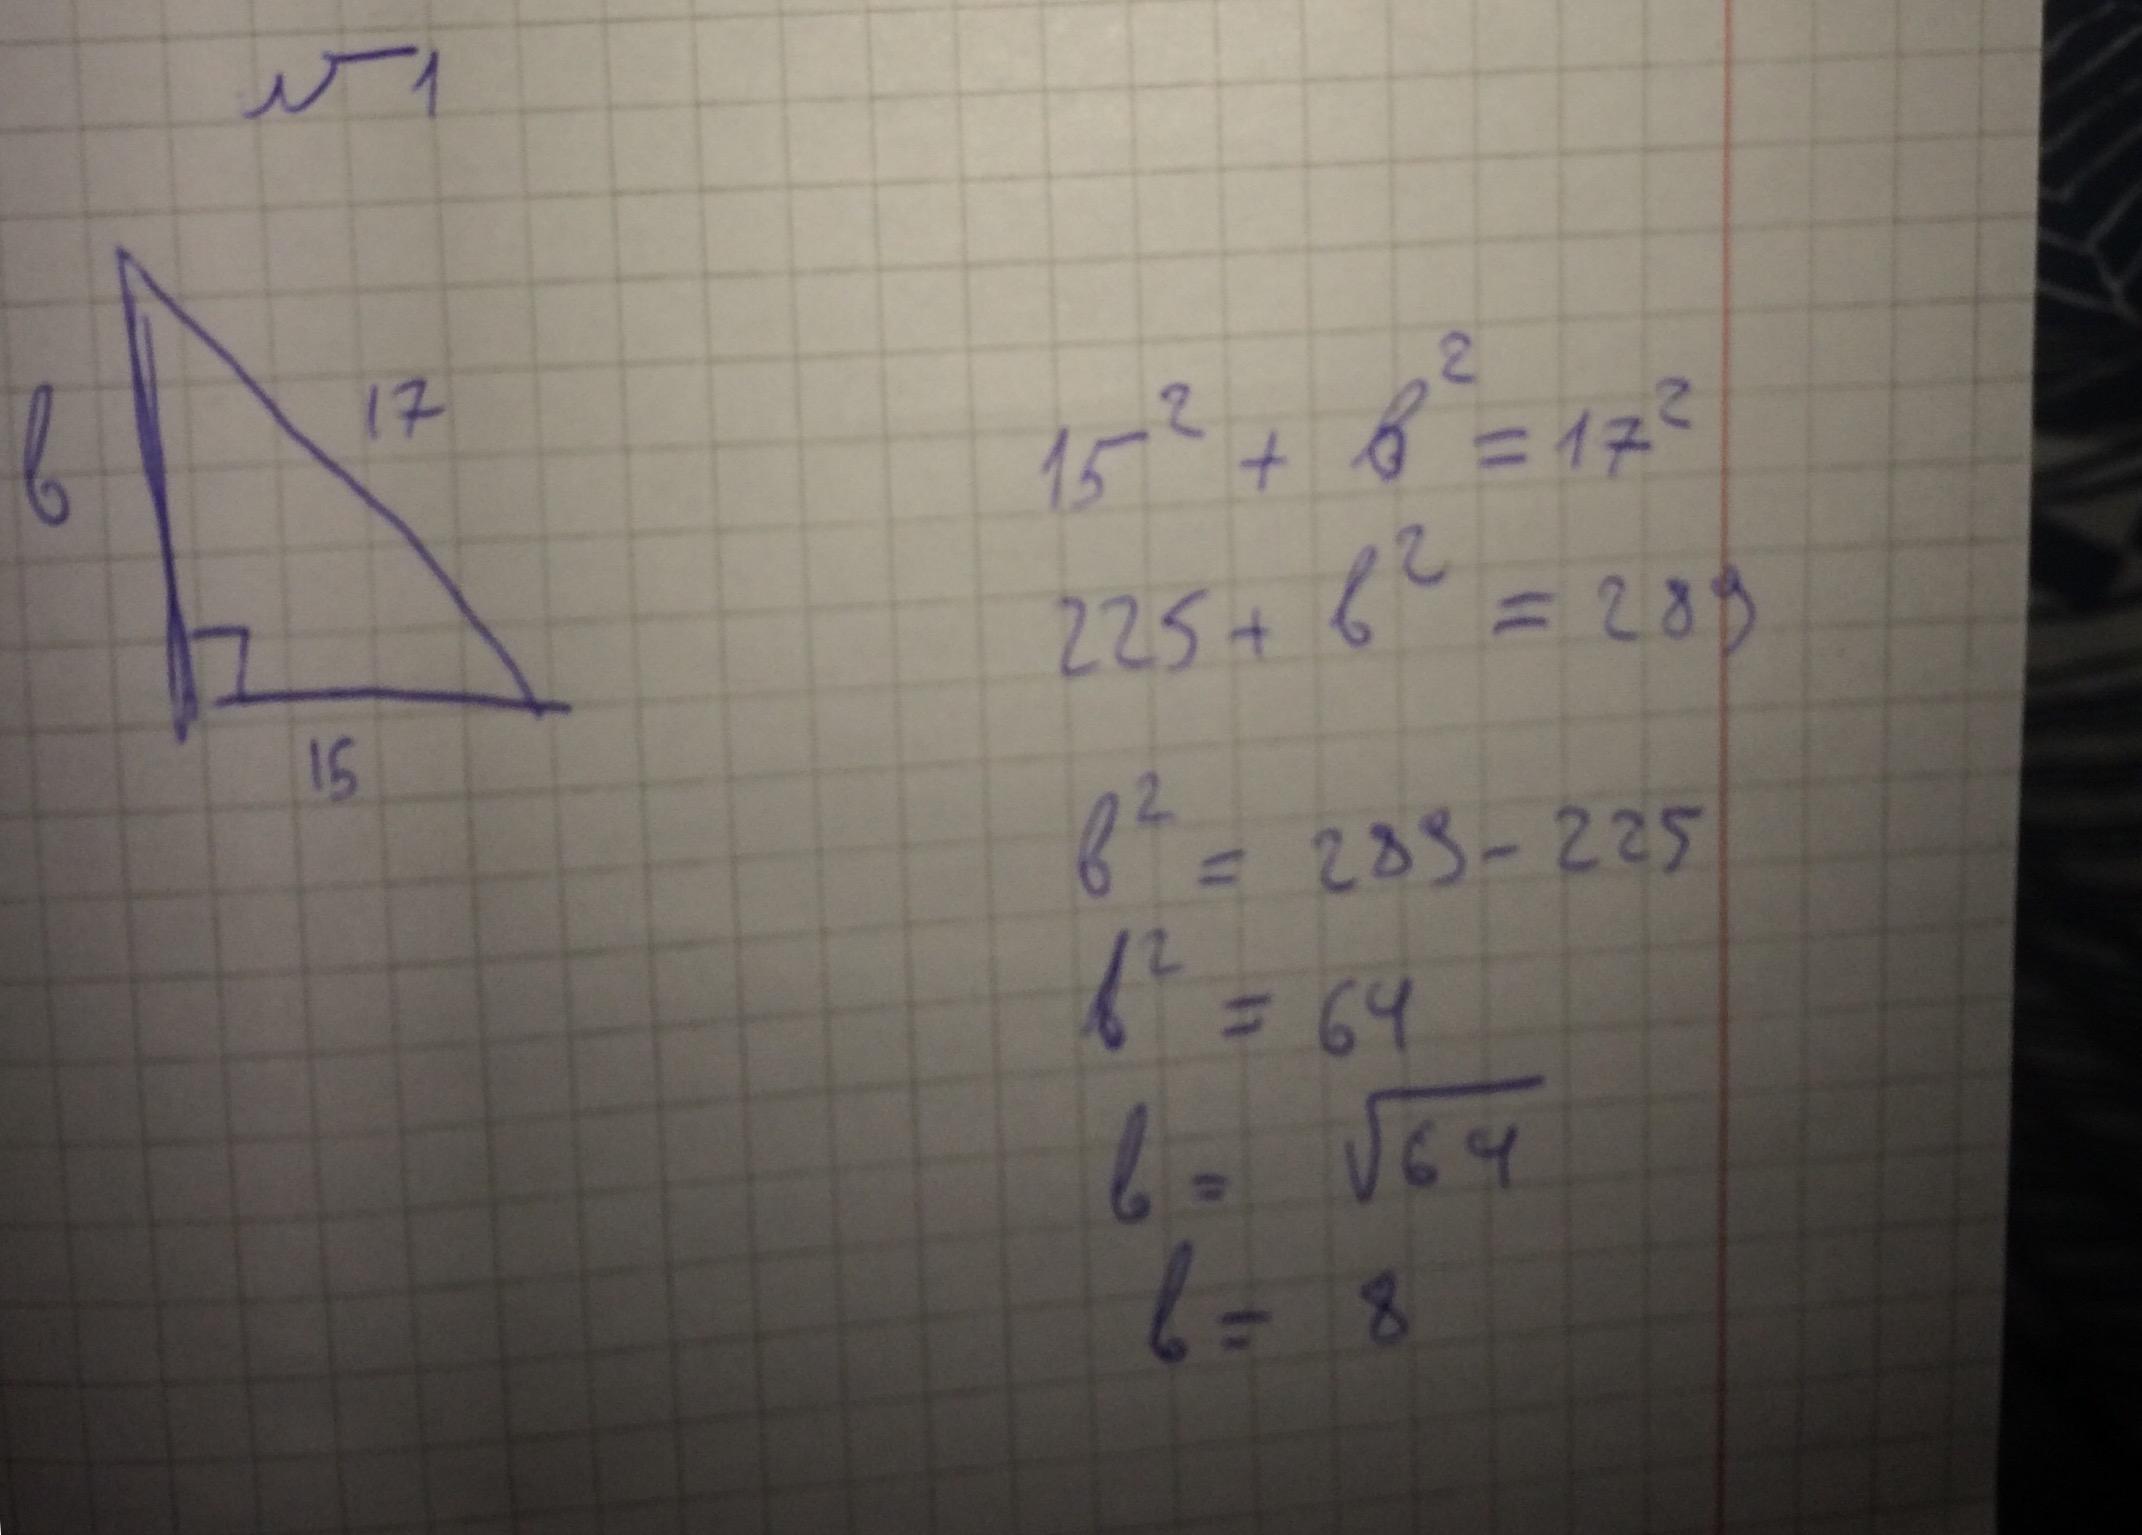 №1
в
17
15
15² + в² = 17²
225 + в² = 289
в² = 289 - 225
в² = 64
в = √64
в = 8